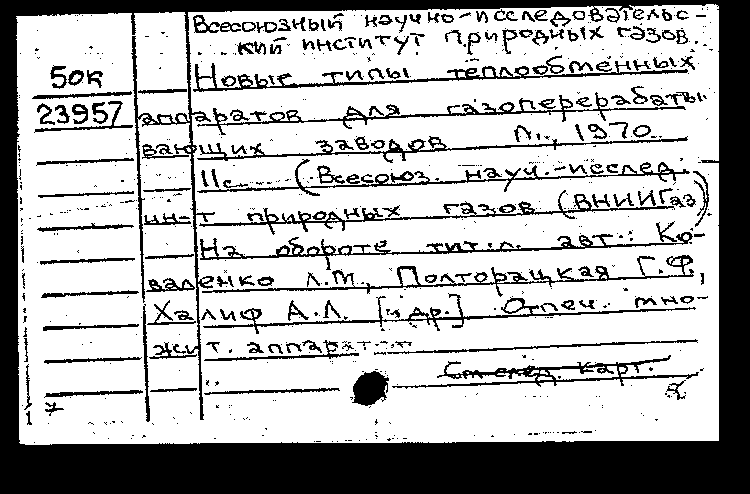 Всесоюзный научно-исследовательс-
кий институт природных газов.
50к Новые типы теплообменных
23957 аппаратов для газоперерабаты-
вающих заводов Л., 1970
11с. (Всесоюз. науч.-исслед.
ин-т природных газов (ВНИИГаз)
На обороте тит. л. авт.: Ко-
валенко Л.М., Полторацкая Г.Ф.,
Халиф А.Л. [и др.] Отпеч. мно-
жит. аппаратом
См след. карт.